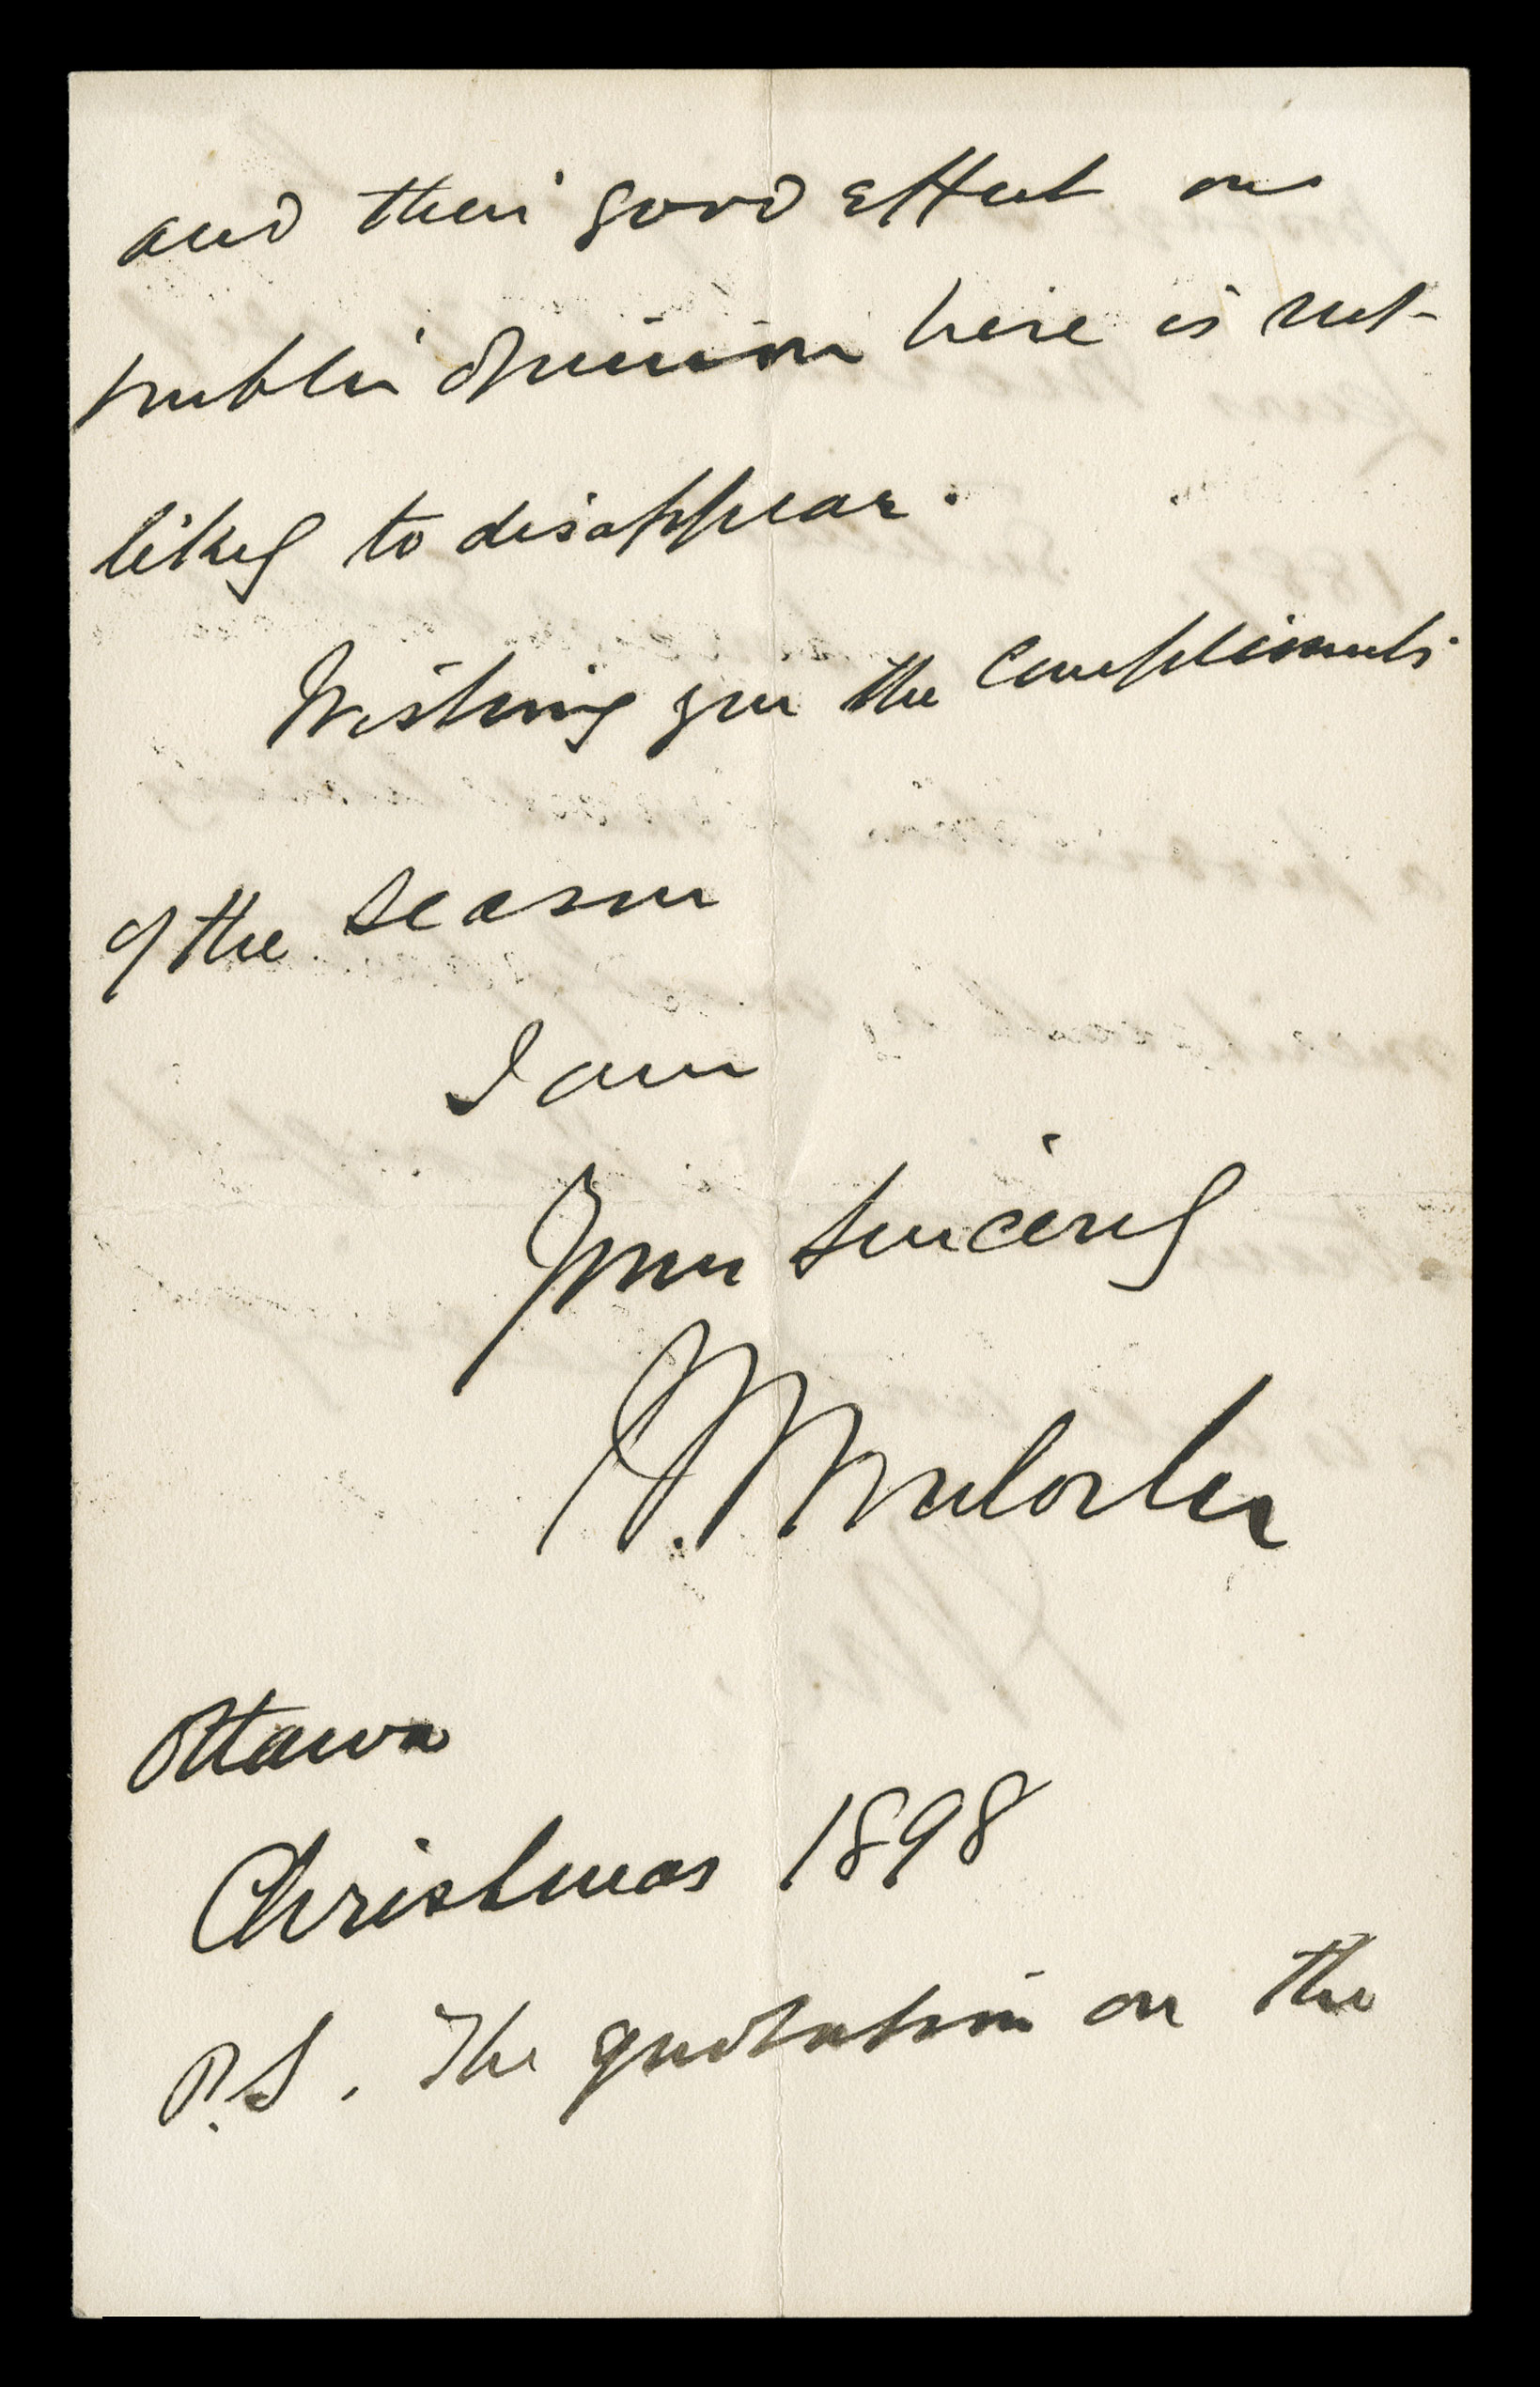 and their good effect on
public opinion here is not
likely to disappear.
Wishing you the compliments
of the season
I am
Yours sincerely
W. Mulock
Ottawa
Christmas 1898
P.S. The quotation on the